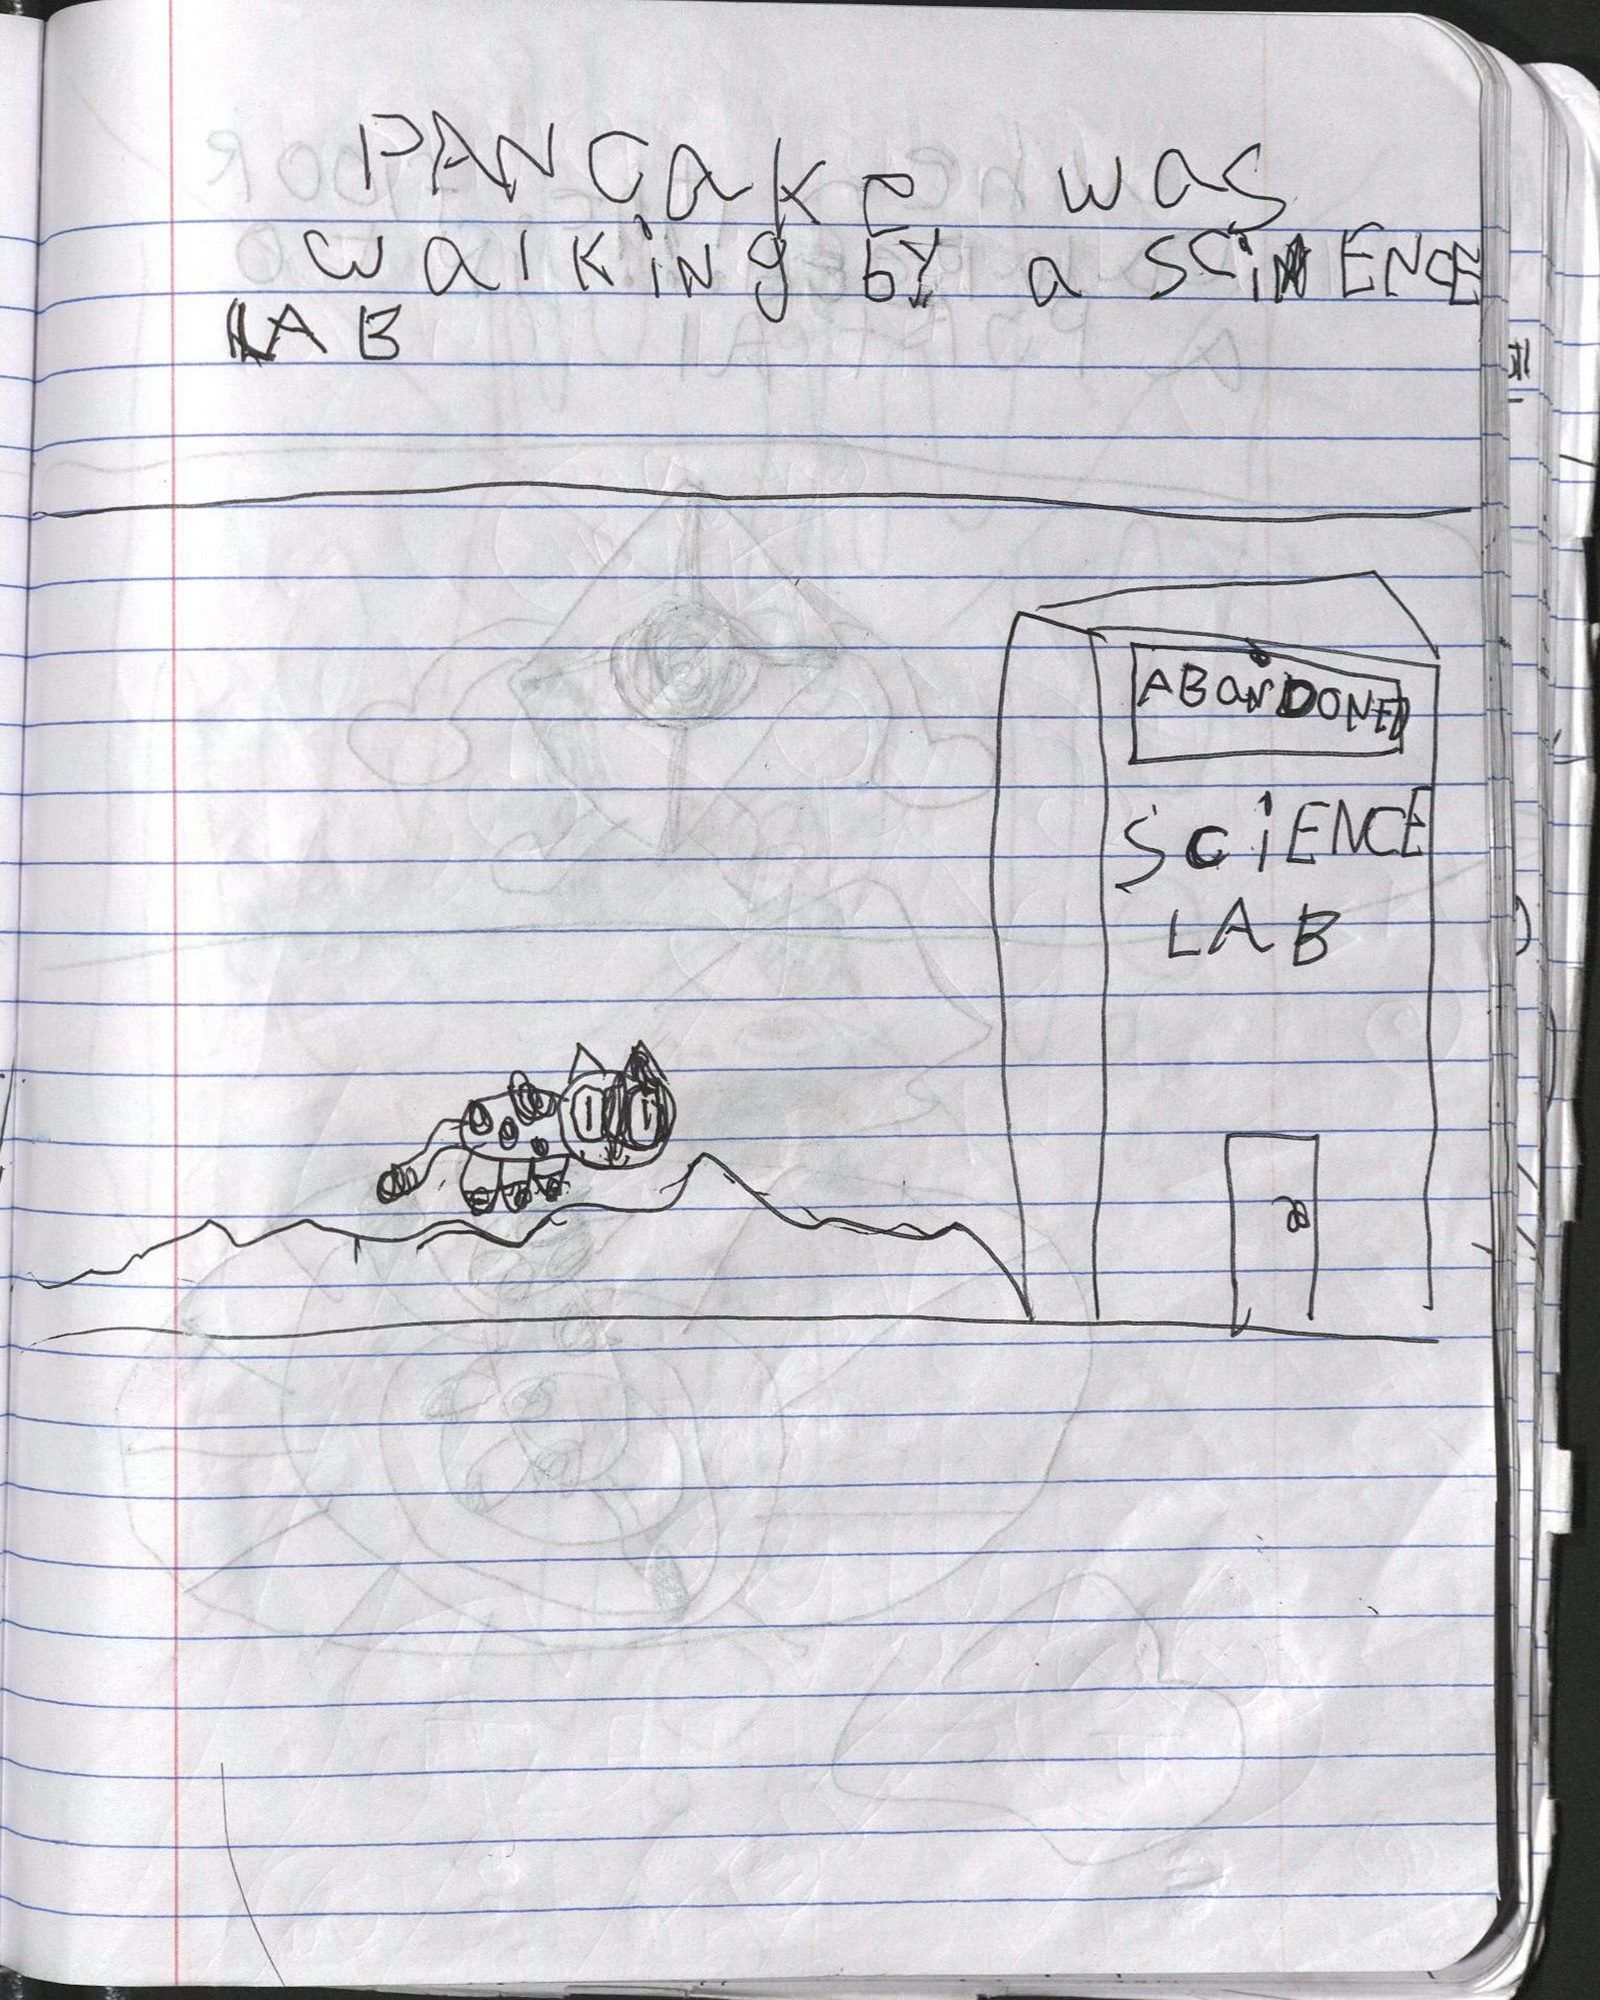 PANCake was
walking by a SCiENCE
LAB
ABaNDONED
SCiENCE
LAB